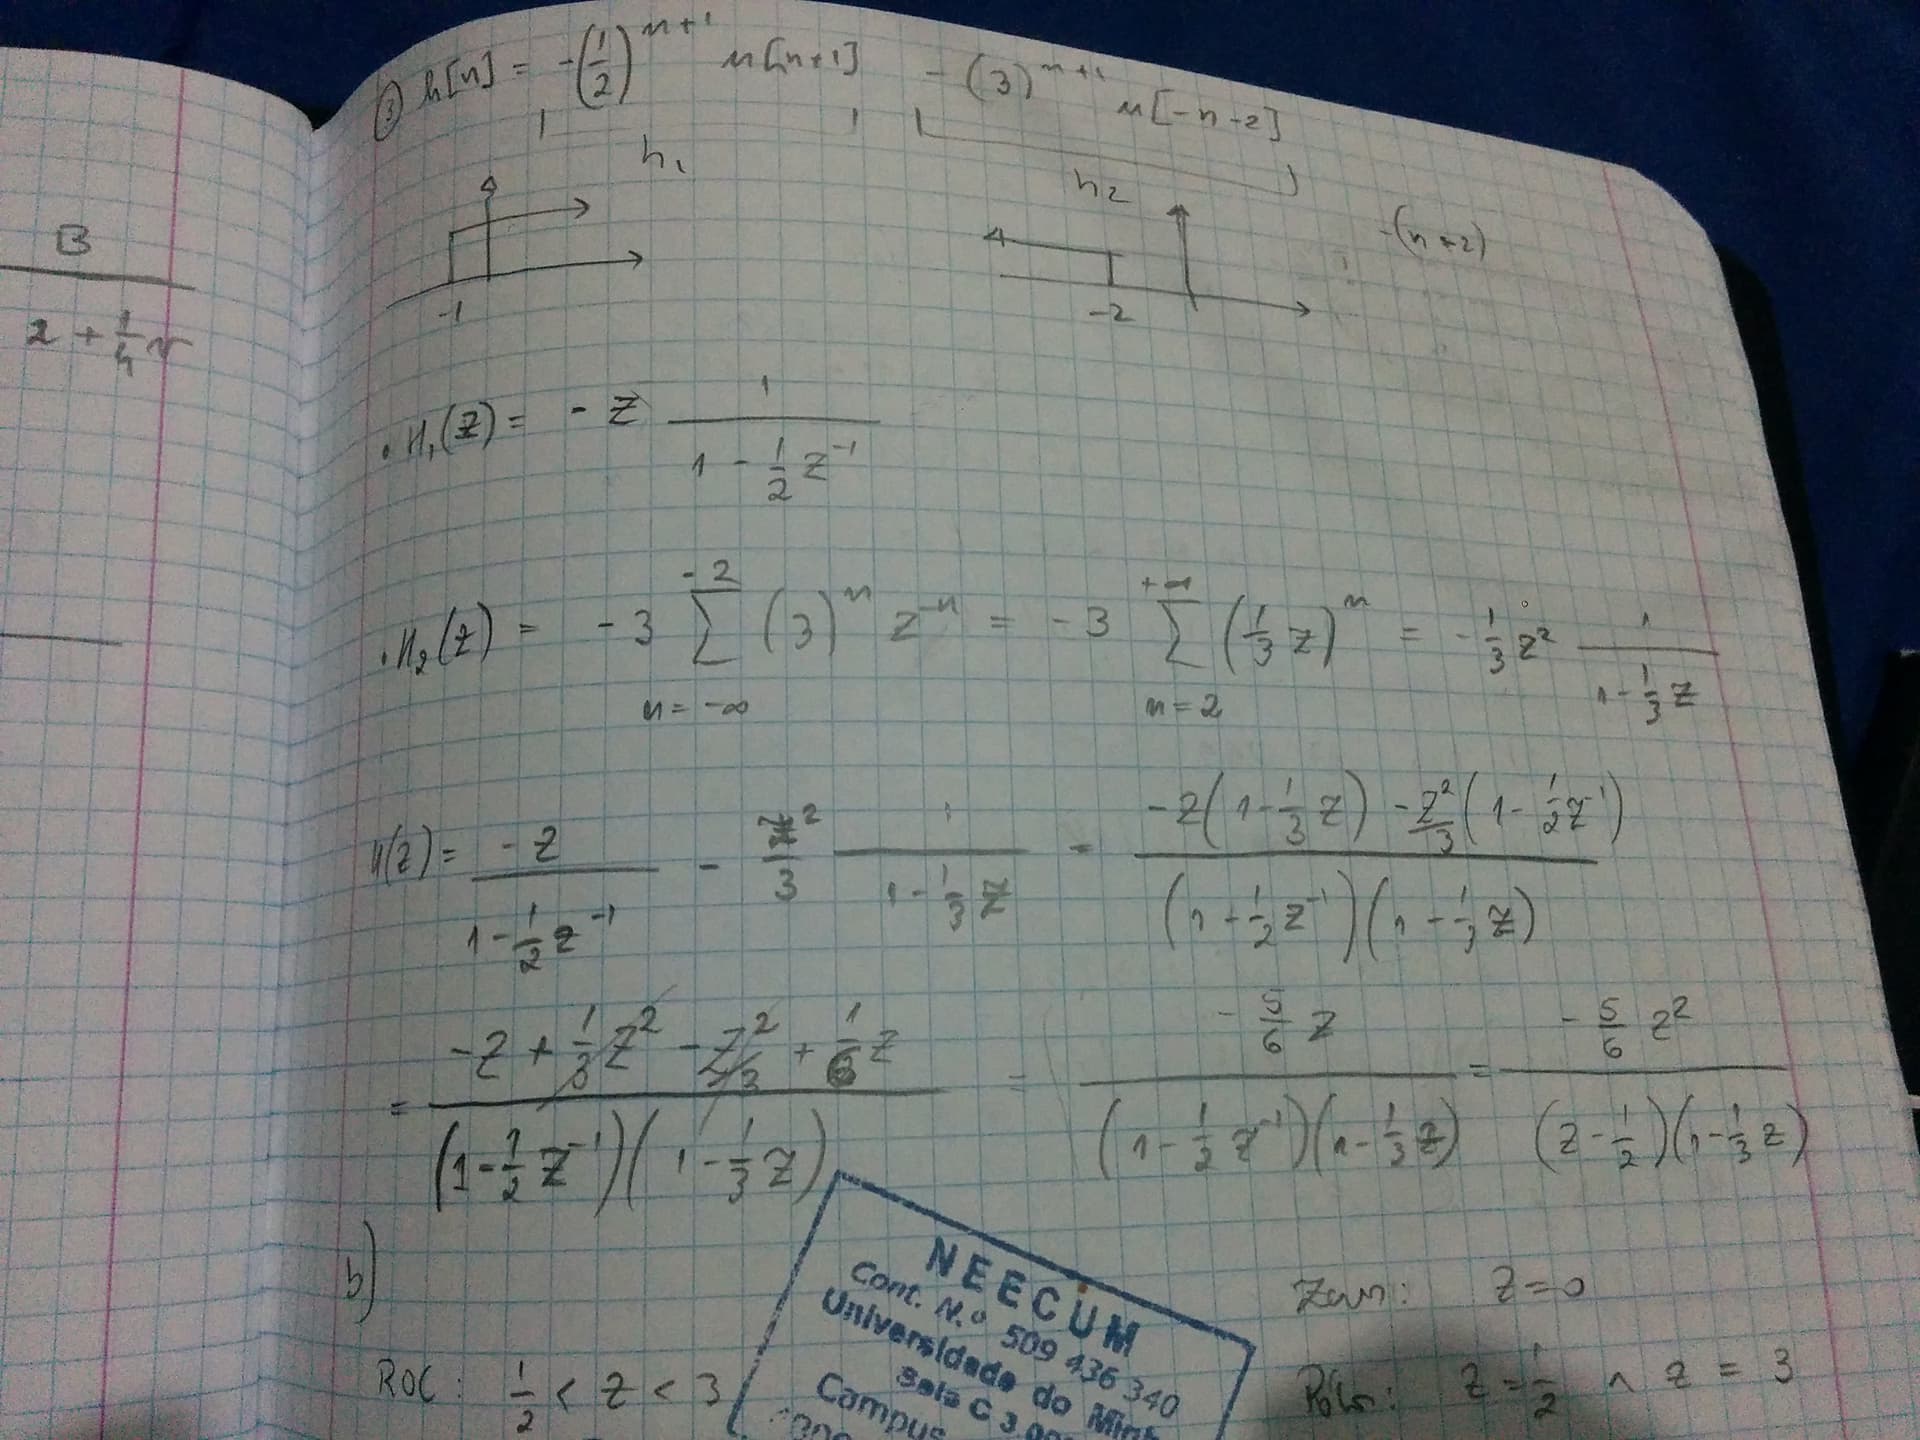 B
2 + 1/4
③ h[n] = -(1/2)^{n+1} u[n+1] - (3)^{n+1} u[-n-2]
h₁ h₂
-(n+2)
-1 -2
• H₁(z) = - z 1/(1 - 1/2 z⁻¹)
• H₂(z) = -3 ∑_{n=-∞}^{-2} (3)^n z^{-n} = -3 ∑_{n=2}^{+∞} (1/3 z)^n = -1/3 z² 1/(1 - 1/3 z)
H(z) = -z/(1 - 1/2 z⁻¹) - z²/3 1/(1 - 1/3 z) = (-z(1 - 1/3 z) - z²/3 (1 - 1/2 z⁻¹))/((1 - 1/2 z⁻¹)(1 - 1/3 z))
= (-z + 1/3 z² - z²/3 + 1/6 z)/((1 - 1/2 z⁻¹)(1 - 1/3 z)) = (-5/6 z)/((1 - 1/2 z⁻¹)(1 - 1/3 z)) = (-5/6 z²)/((z - 1/2)(1 - 1/3 z))
b)
Zeros: z = 0
ROC: 1/2 < z < 3
Pólos: z = 1/2 ∧ z = 3
NEECUM
Cont. N.º 509 436 340
Universidade do Minh
Sala C 3.00
Campus